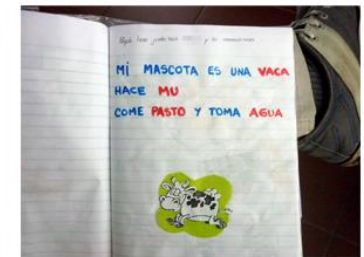 MI MASCOTA ES UNA VACA
HACE MU
COME PASTO Y TOMA AGUA